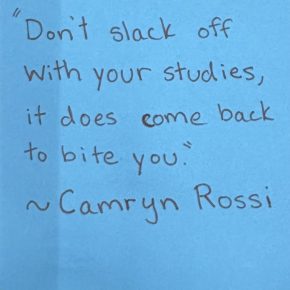 "Don't slack off
with your studies,
it does come back
to bite you."
~ Camryn Rossi